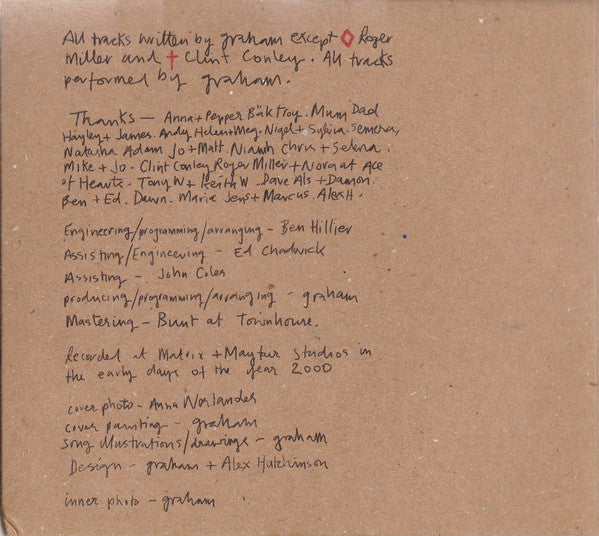 All tracks written by graham except ◊ Roger
Miller and † Clint Conley. All tracks
performed by graham.
Thanks — Anna + Pepper Bäk troy. Mum Dad
Hayley + James. Andy Helen + Meg. Nigel + Sylvia. Semena,
Natasha Adam Jo + Matt. Niamh Chris + Selena.
Mike + Jo. Clint Conley Roger Miller + Nora at Ace
of Hearts. Tony W + Keith W. Dave Als + Damon.
Ben + Ed. Dawn. Marie Jens + Marcus Alex H.
Engineering/programming/arranging - Ben Hillier
Assisting/Engineering - Ed Chadwick
Assisting - John Coles
producing/programming/arranging - graham
Mastering - Bunt at Townhouse.
Recorded at Matrix + Mayfair studios in
the early days of the year 2000
cover photo - Anna Norlander
cover painting - graham
song illustrations/drawings - graham
Design - graham + Alex Hutchinson
inner photo - graham